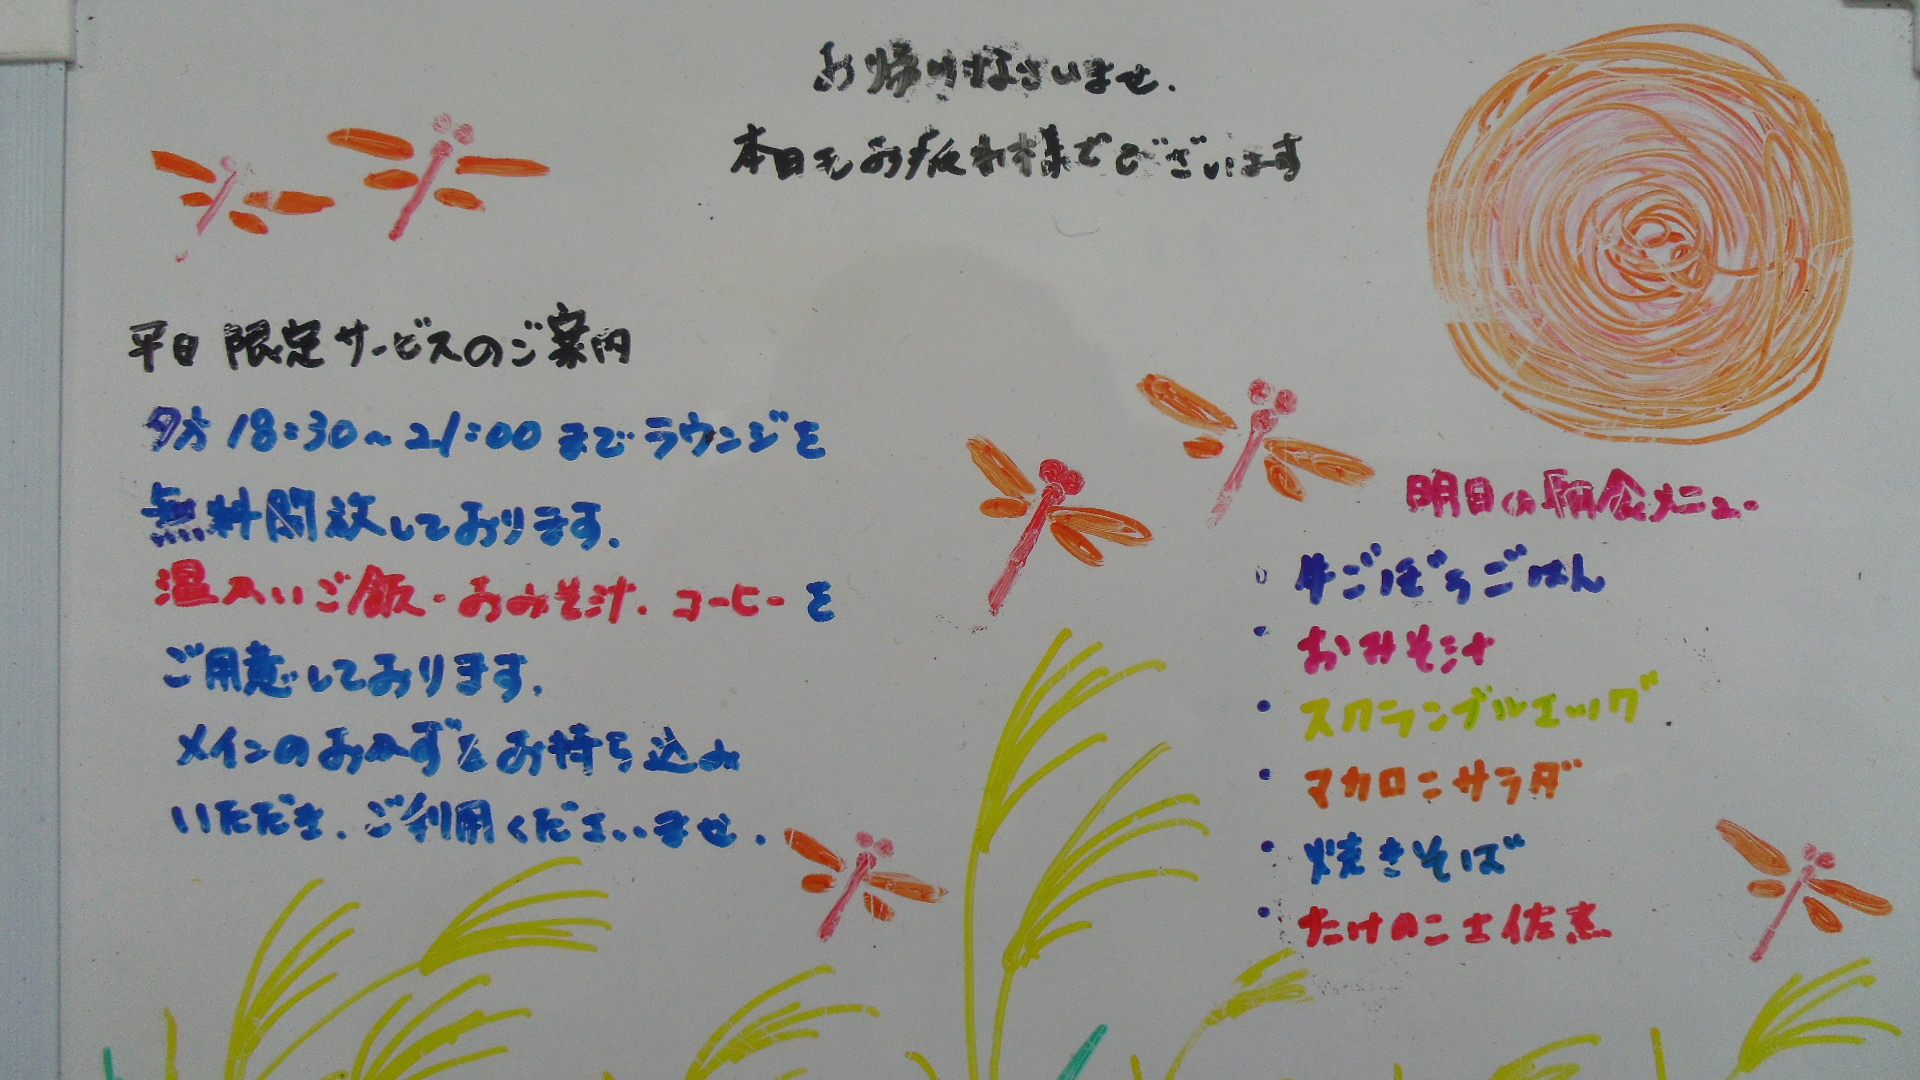 お帰りなさいませ.
本日もお疲れ様でございます
平日 限定サービスのご案内
夕方 18:30〜21:00 までラウンジを
無料開放しております.
温かいご飯・おみそ汁. コーヒー を
ご用意しております.
メインのおかずをお持ち込み
いただき. ご利用くださいませ.
明日の朝食メニュー
・牛ごぼうごはん
・おみそ汁
・スクランブルエッグ
・マカロニサラダ
・焼きそば
・たけのこ土佐煮